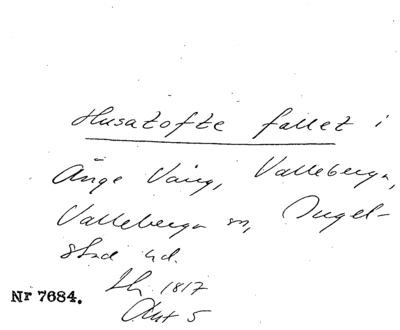 Husatofte fallet i
Änge Vång, Valleberga,
Valleberga sn, Ingel-
stad hd.
Lh 1817
Akt 5
Nr 7684.